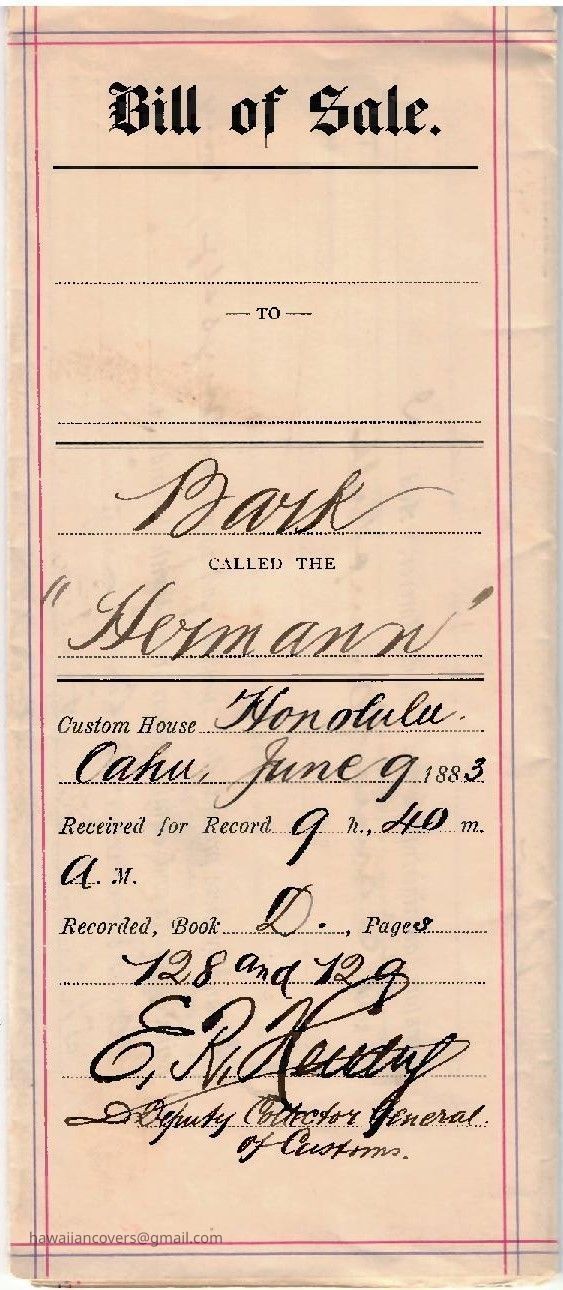 Bill of Sale.
— TO —
Bark
CALLED THE
"Hermann"
Custom House Honolulu.
Oahu, June 9 1883
Received for Record 9 h., 40 m.
A. M.
Recorded, Book D., Pages
128 and 129
E. R. Hendry
Deputy Collector General
of Customs.
hawaiiancovers@gmail.com